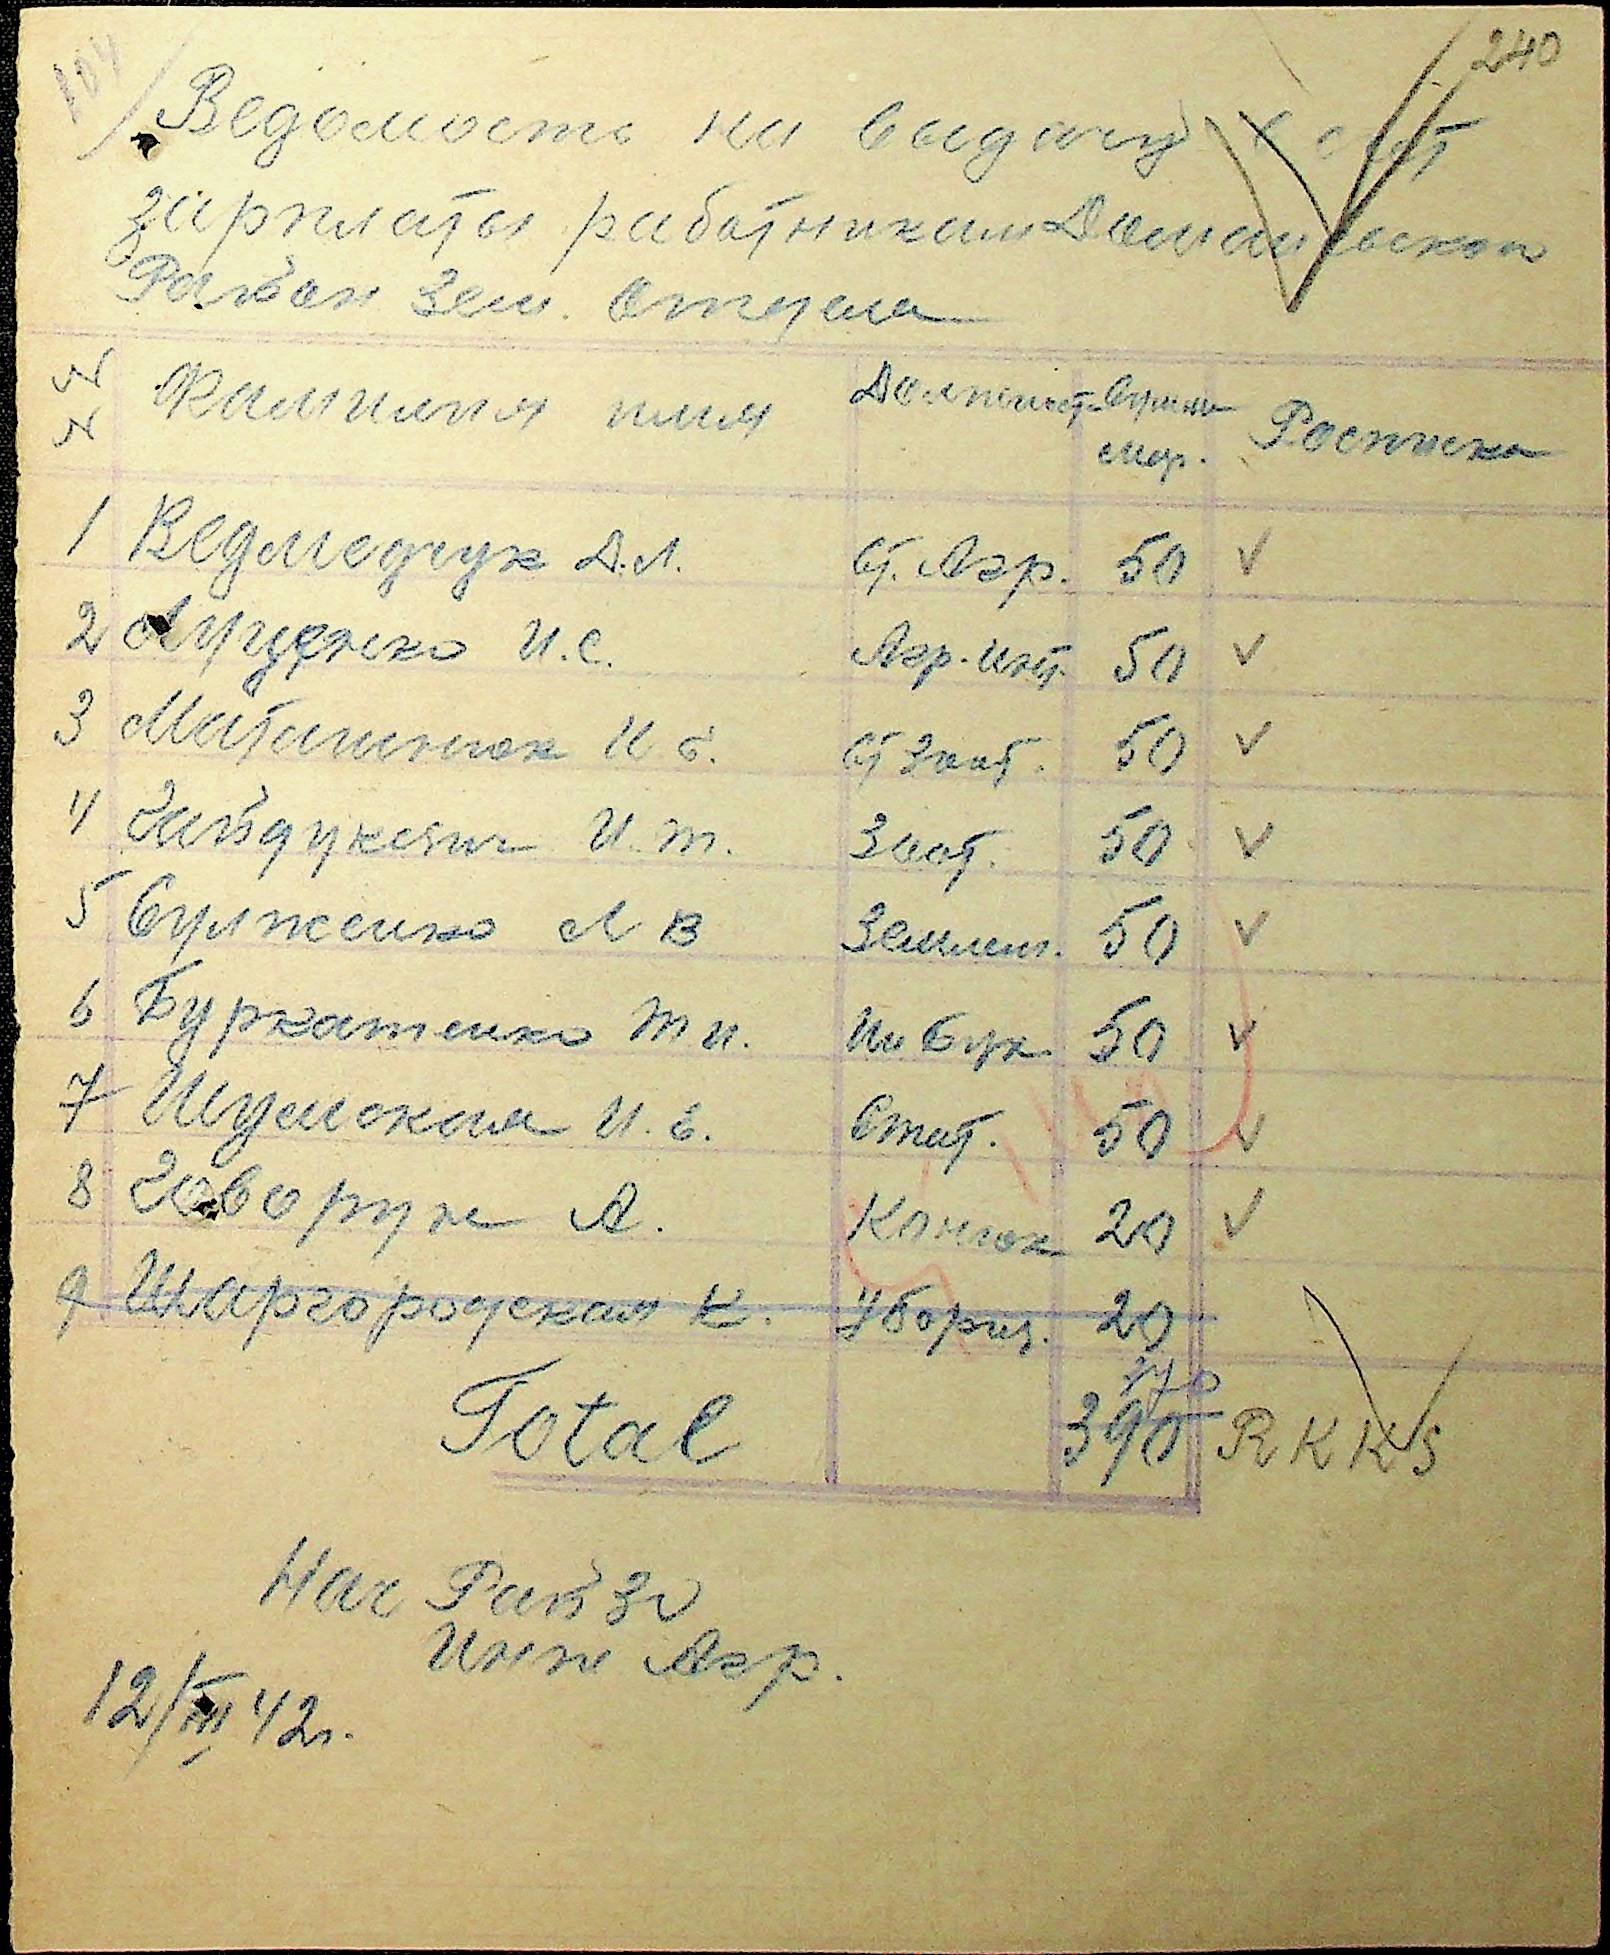 104
240
Ведомость на выдачу в счет
зарплаты работникам Доманевского
Район Зем. Отдела
N N Фамилия имя Должность Сумма мар. Расписка
1 Ведмедчук Д.Л. Ст. Агр. 50 ✓
2 Луценко И.С. Агр. инт. 50 ✓
3 Маташнюк И. Ф. Ст Зоот. 50 ✓
4 Гайдукевич И. Т. Зоот. 50 ✓
5 Сулженко А В Землеп. 50 ✓
6 Буркатенко Т И. Ин Бух. 50 ✓
7 Шумская И. Е. Стат. 50 ✓
8 Говорун А. Конюх 20 ✓
9 Шаргородская К. Уборщ. 20
370
Total 390 RKKS
Нач РайЗО
Инж Агр.
12/III 42г.